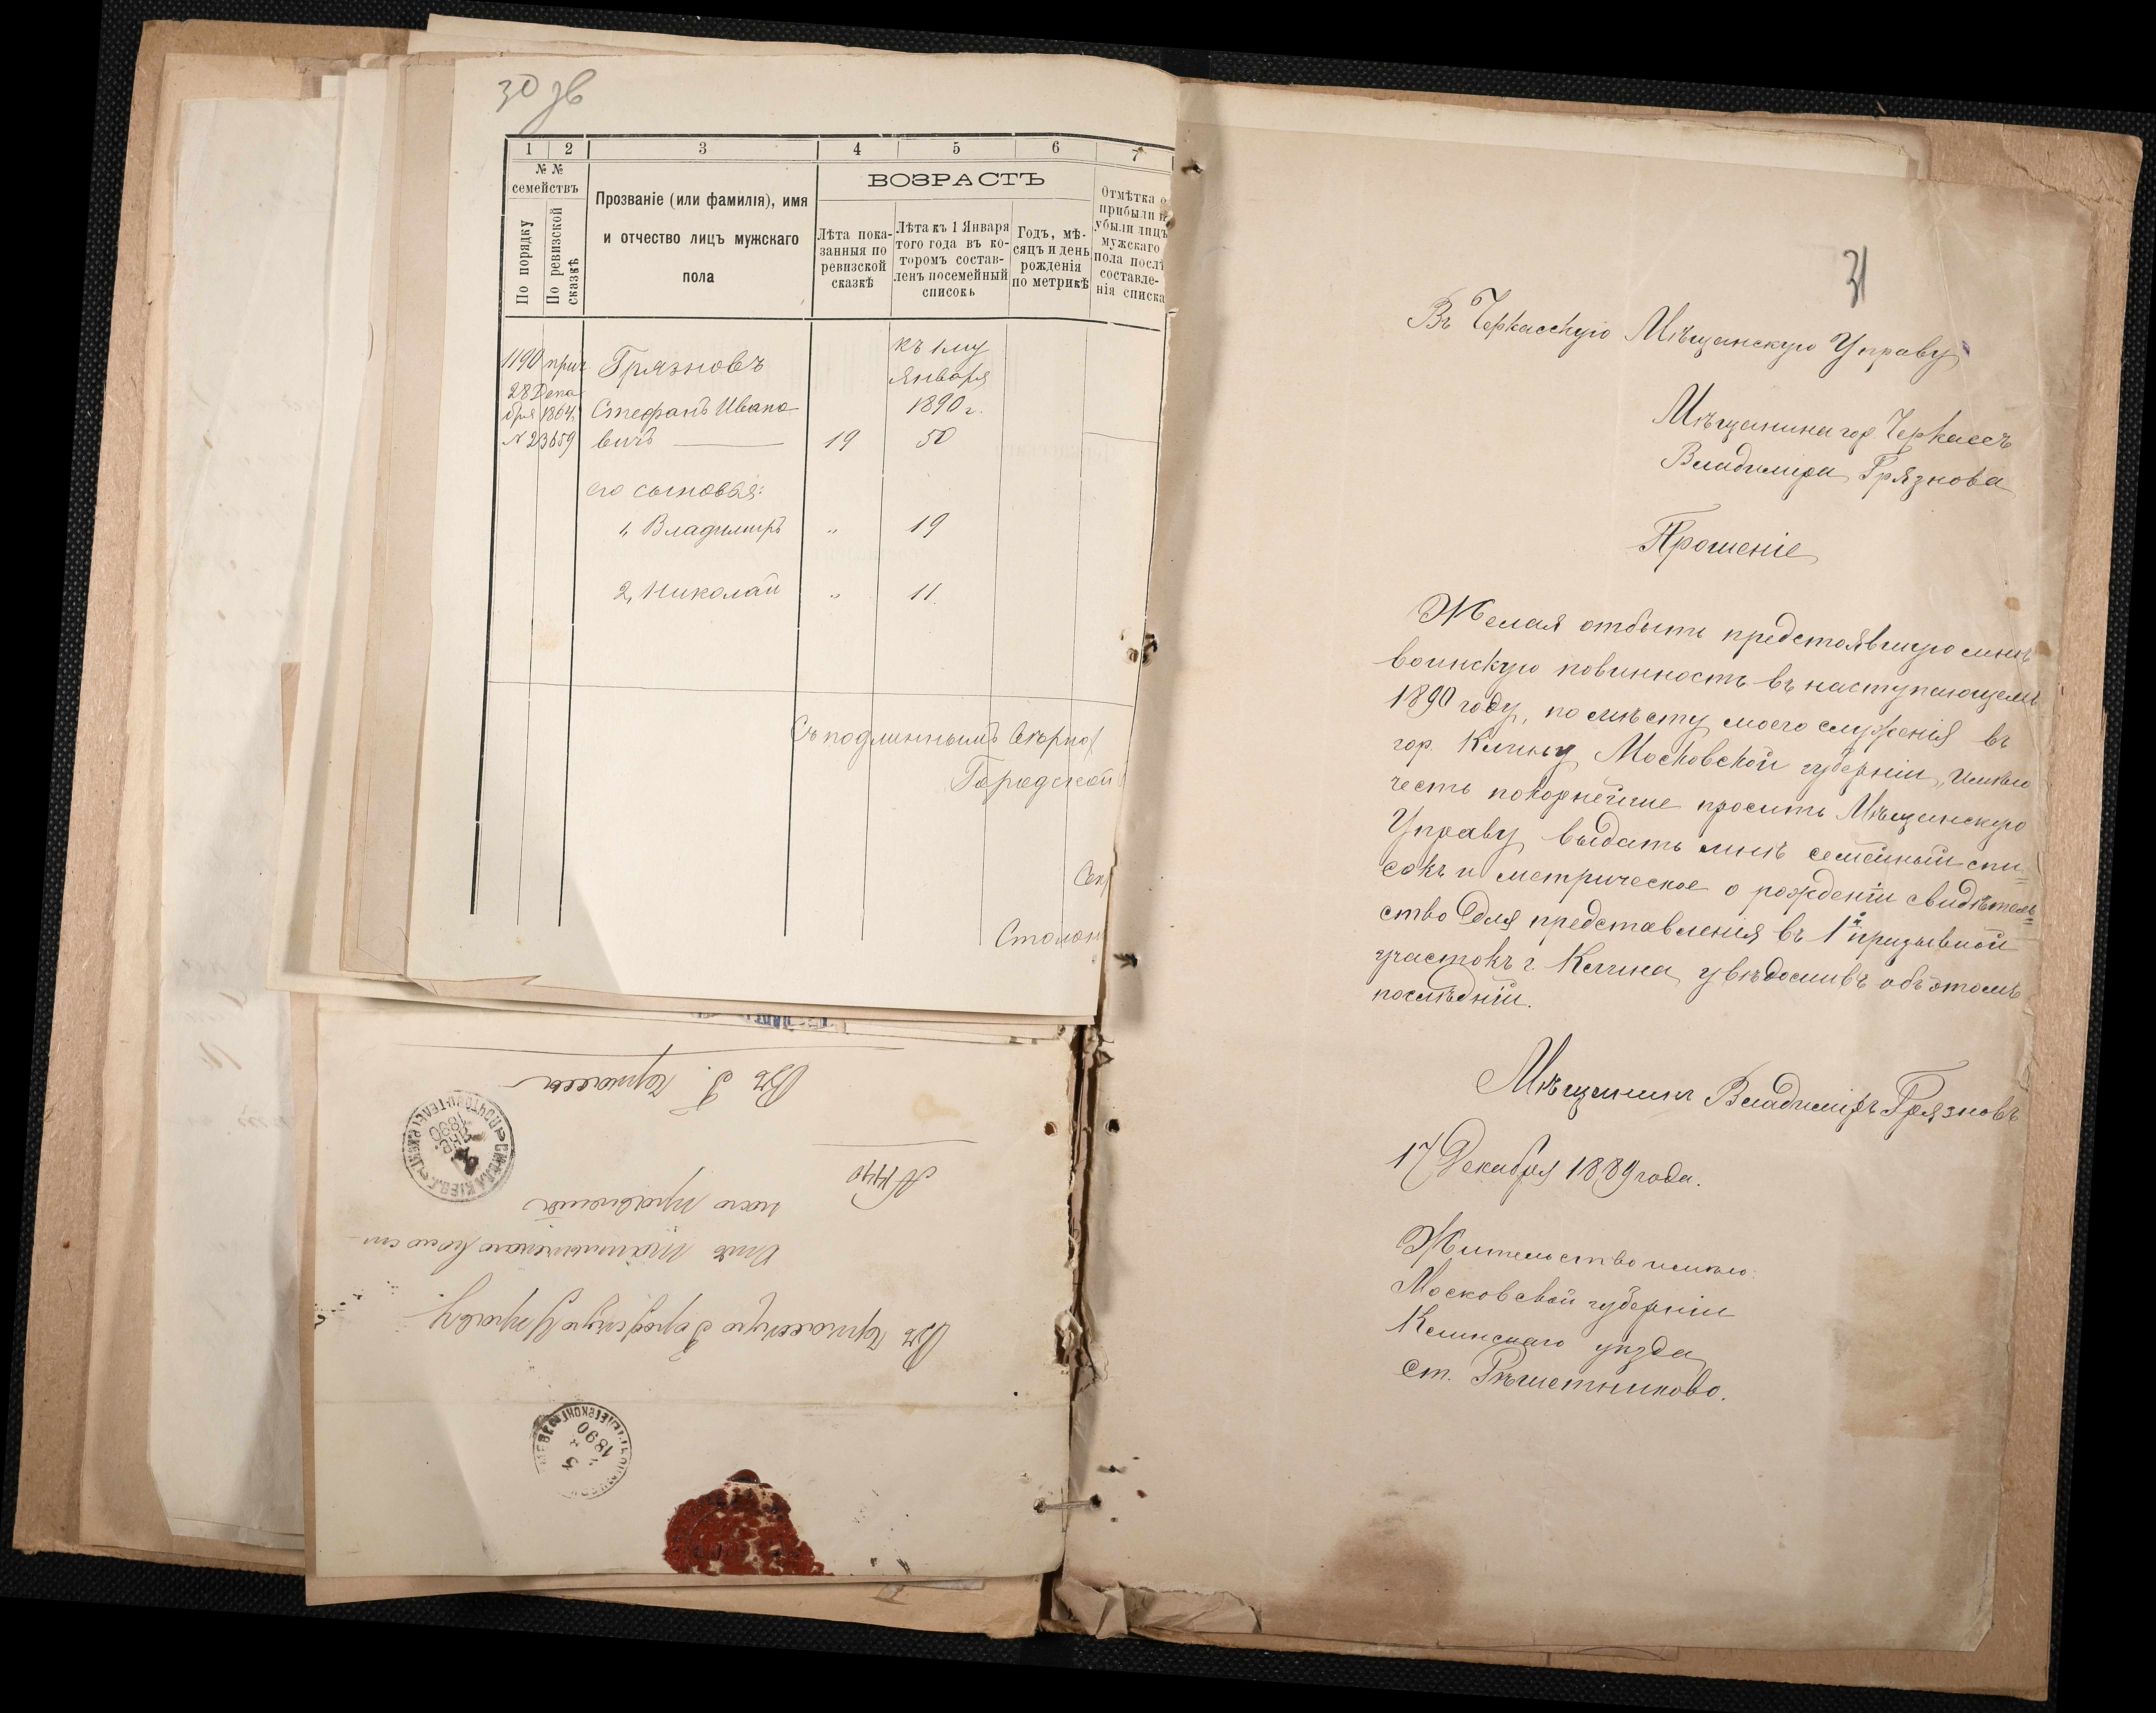 30 зв
1 2 3 4 5 6 7
№ №
семействъ
По порядку
По ревизской
сказкѣ
Прозваніе (или фамилія), имя
и отчество лицъ мужскаго
пола
ВОЗРАСТЪ
Лѣта пока-
занныя по
ревизской
сказкѣ
Лѣта къ 1 Января
того года въ ко-
торомъ состав-
ленъ посемейный
списокъ
Годъ, мѣ-
сяцъ и день
рожденія
по метрикѣ
Отмѣтка о
прибыли и
убыли лицъ
мужскаго
пола послѣ
составле-
нія списка
къ 1му
1190 прич Грязновъ Января
28 Дека-
бря 1864 Стефанъ Ивано- 1890 г.
№ 23659 вичъ 19 50
его сыновья:
1, Владимиръ " 19
2, Николай " 11
Съ подлиннымъ вѣрно
Городской
Сек
Столон
Въ Черкасскую Городскую Управу
Отъ
ного правленія
№ 1440
Въ Г. Черкассы
1890
1890
31
Въ Черкасскую Мѣщанскую Управу
Мѣщанина гор Черкассъ
Владиміра Грязнова
Прошеніе
Желая отбыть предстоявшую мнѣ
воинскую повинность въ наступающемъ
1890 году, по мѣсту моего служенія въ
гор. Клину Московской губерніи, имѣю
честь покорнейше просить Мѣщанскую
Управу выдать мнѣ семейный спи=
сокъ и метрическое о рожденіи свидѣтель=
ство для представленія въ 1й призывной
участокъ г. Клина, увѣдомивъ объ этомъ
послѣдній.
Мѣщанинъ Владиміръ Грязновъ
17 Декабря 1889 года.
Жительство имѣю:
Московской губерніи
Клинскаго уѣзда
ст. Рѣшетниково.